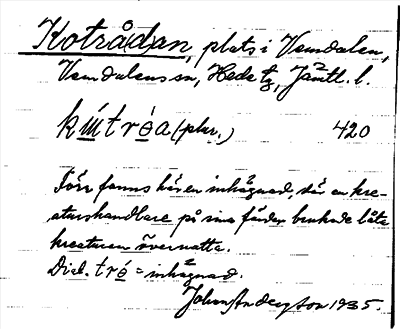 Kotrådan, plats i Vemdalen,
Vemdalens sn, Hede tg, Jämtl. l.
kút̀róa (plur.) 420
Förr fanns här en inhägnad, där en kre-
aturshandlare på sina färder brukade låta
kreaturen övernatta.
Dial. tró = inhägnad.
Johan Anderzson 1935.